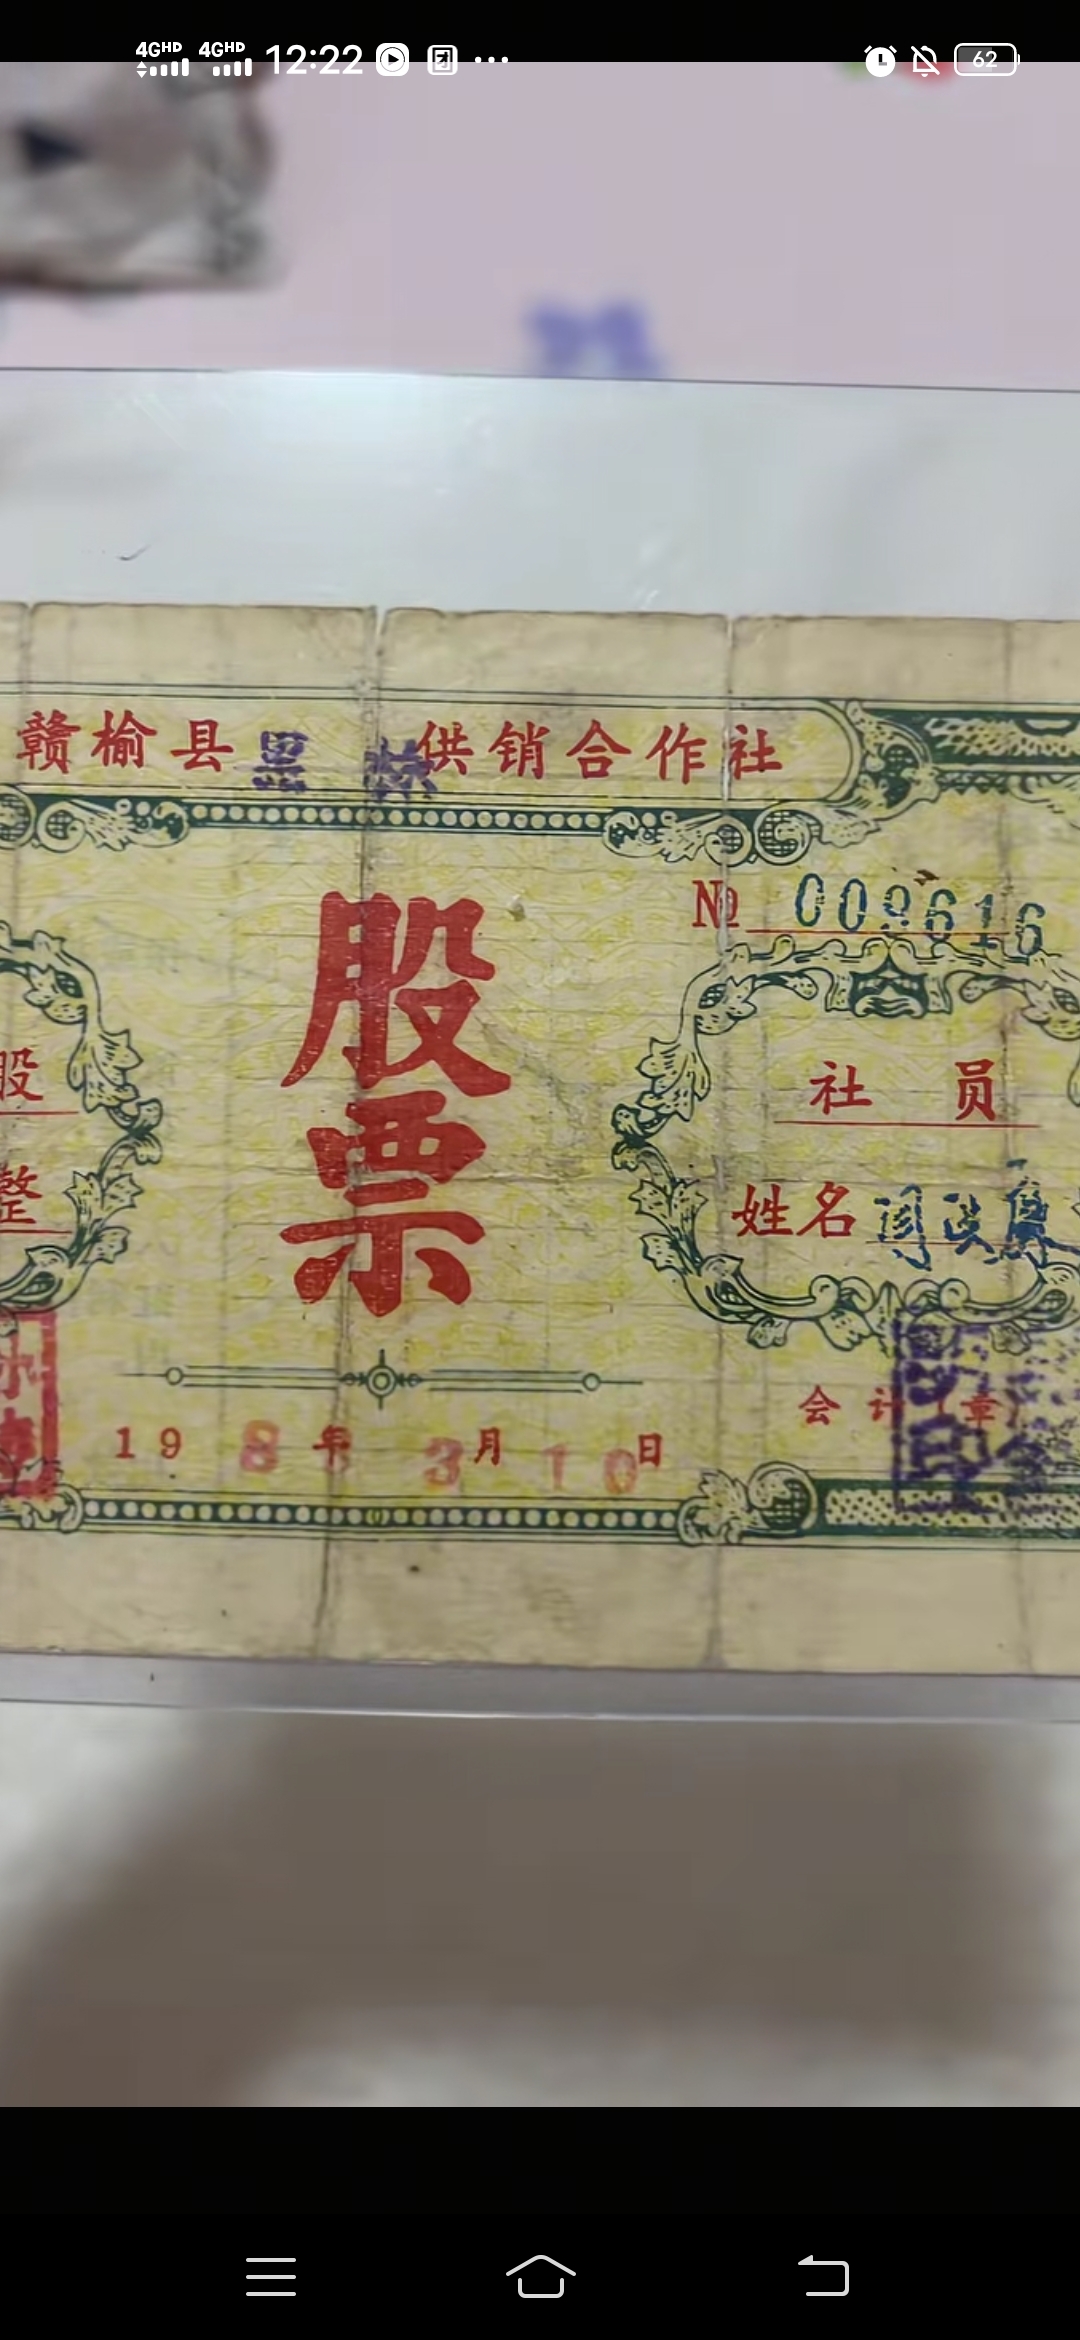 4GHD 4GHD 12:22 ... 62
赣榆县黑林供销合作社
№ 009616
股票
股
整
社 员
姓名
会计(章)
198 年 3月 10日